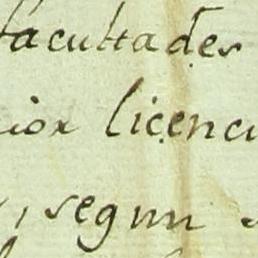 facultades
ior licenci
, segun